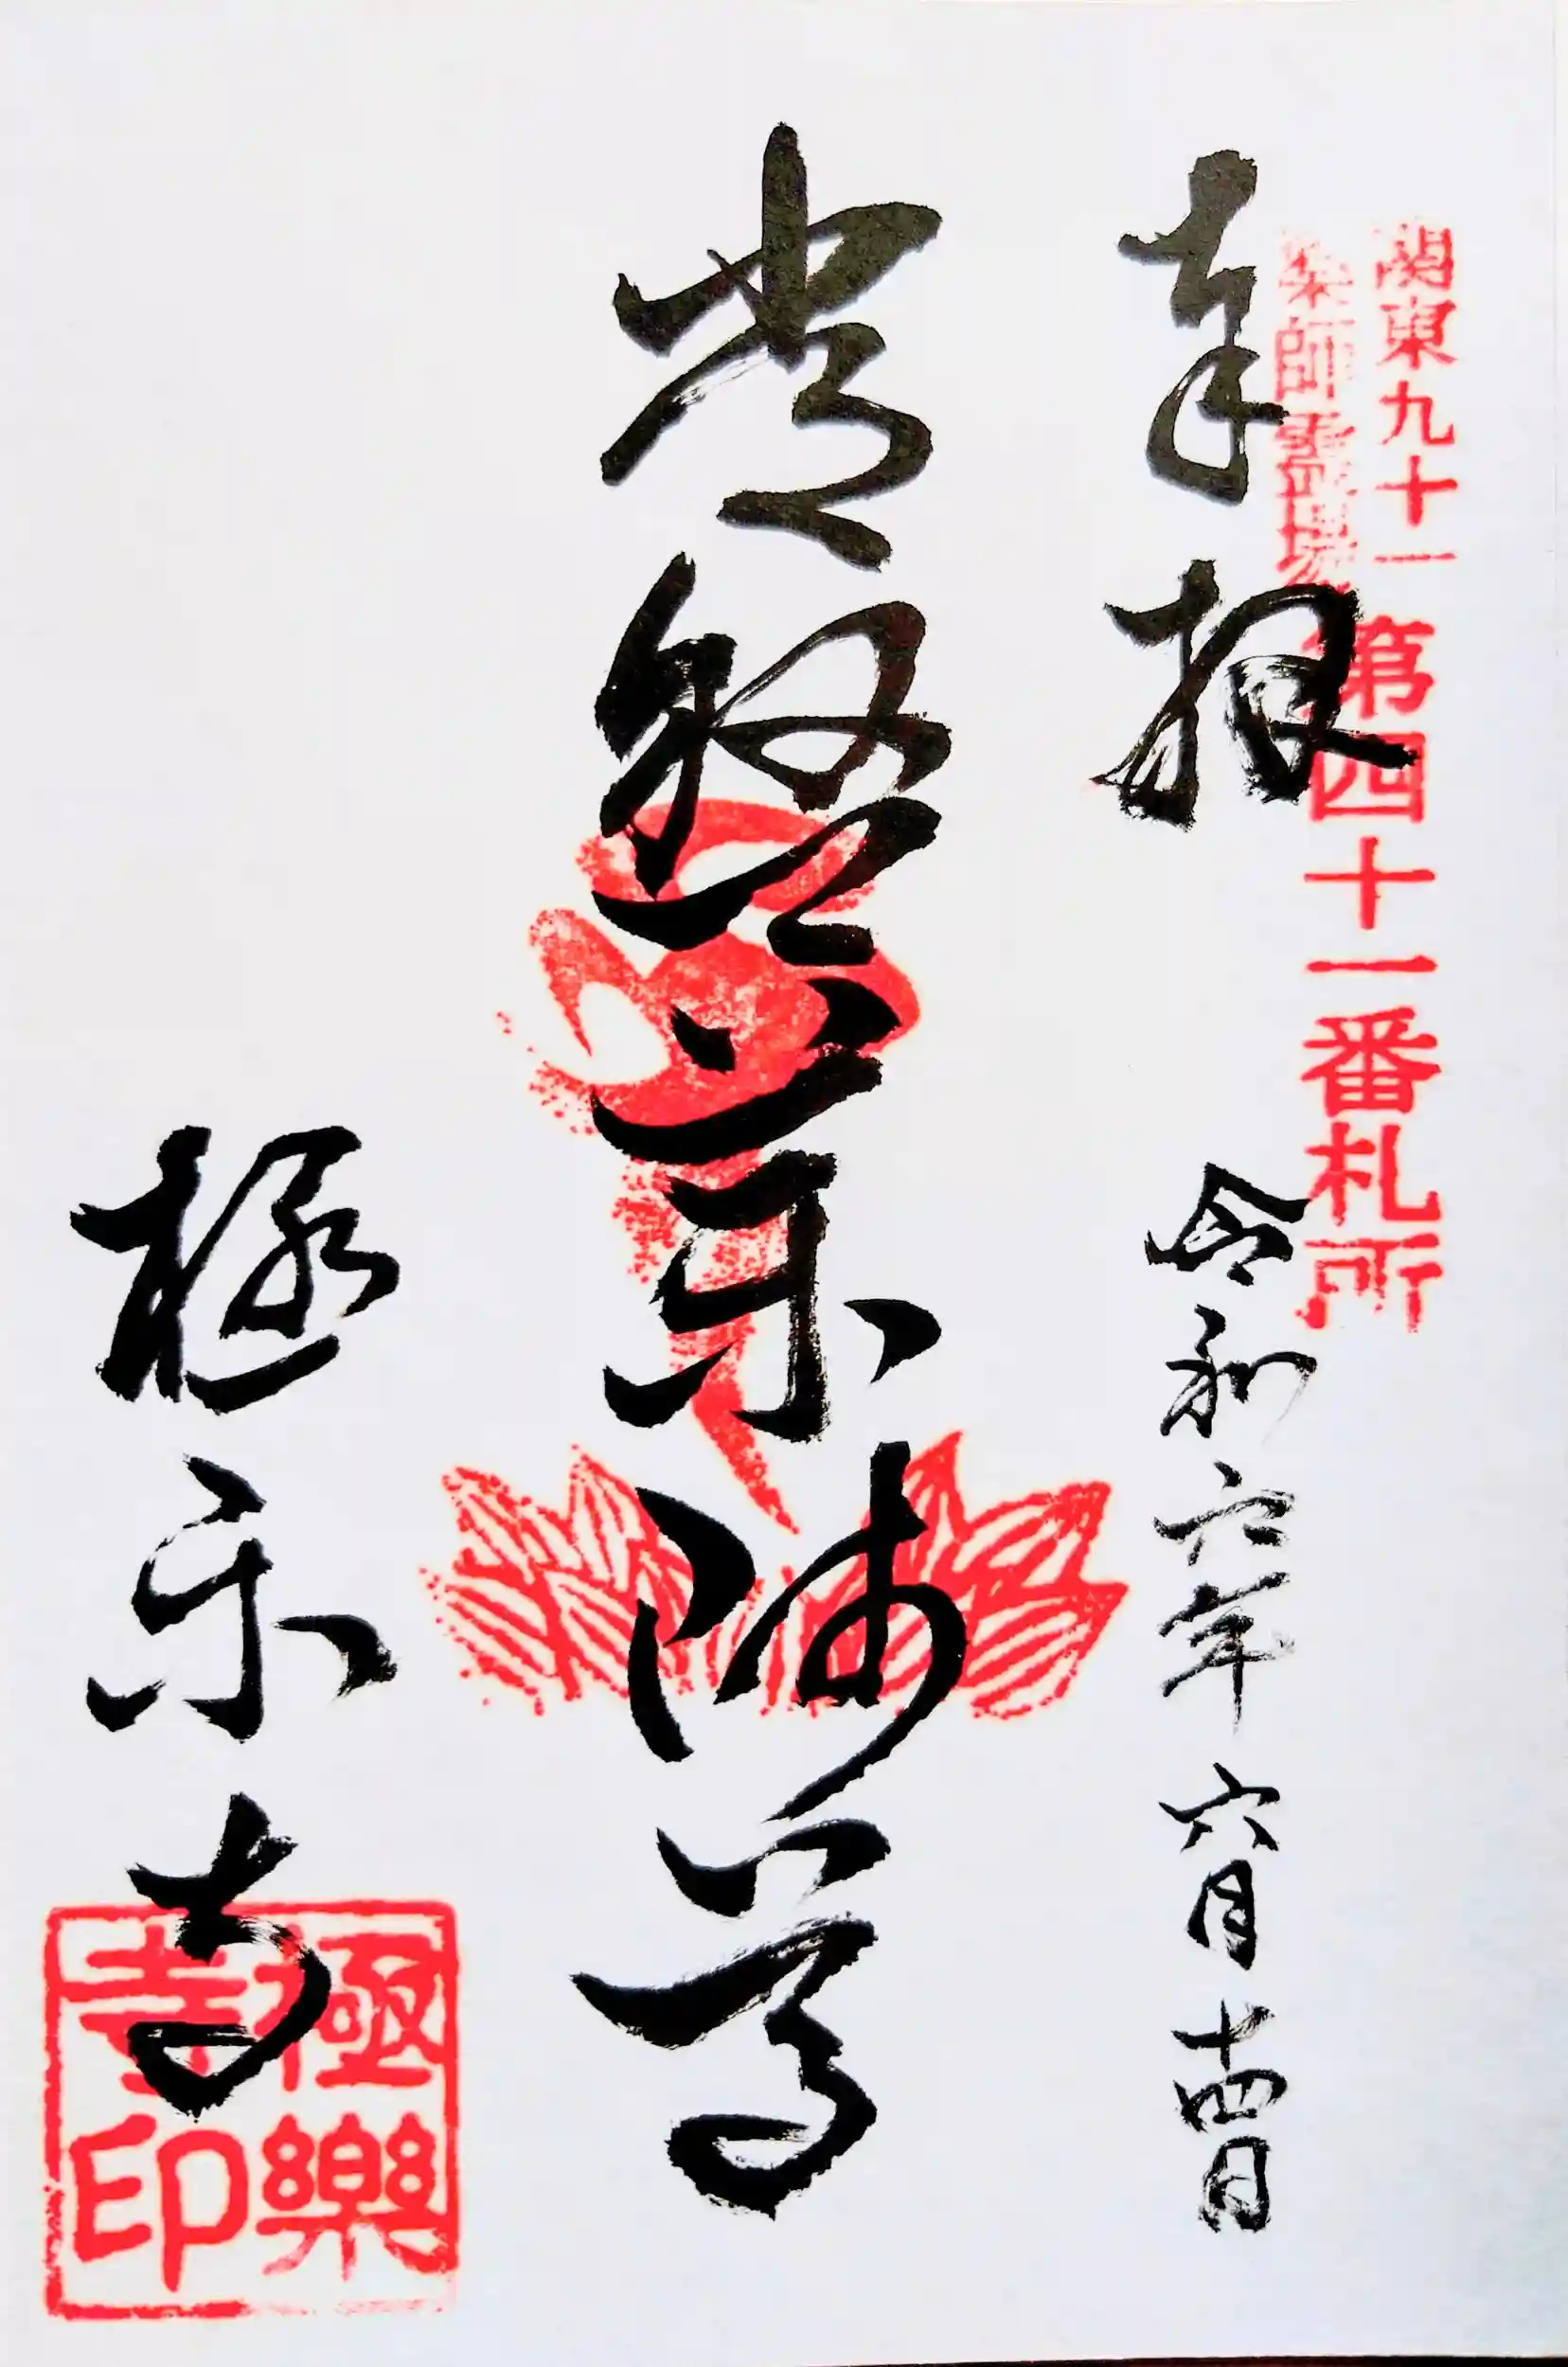 関東九十一
薬師霊場
第四十一番札所
奉拝
令和六年六月十四日
常盤薬師尊
極楽寺
極樂
寺印